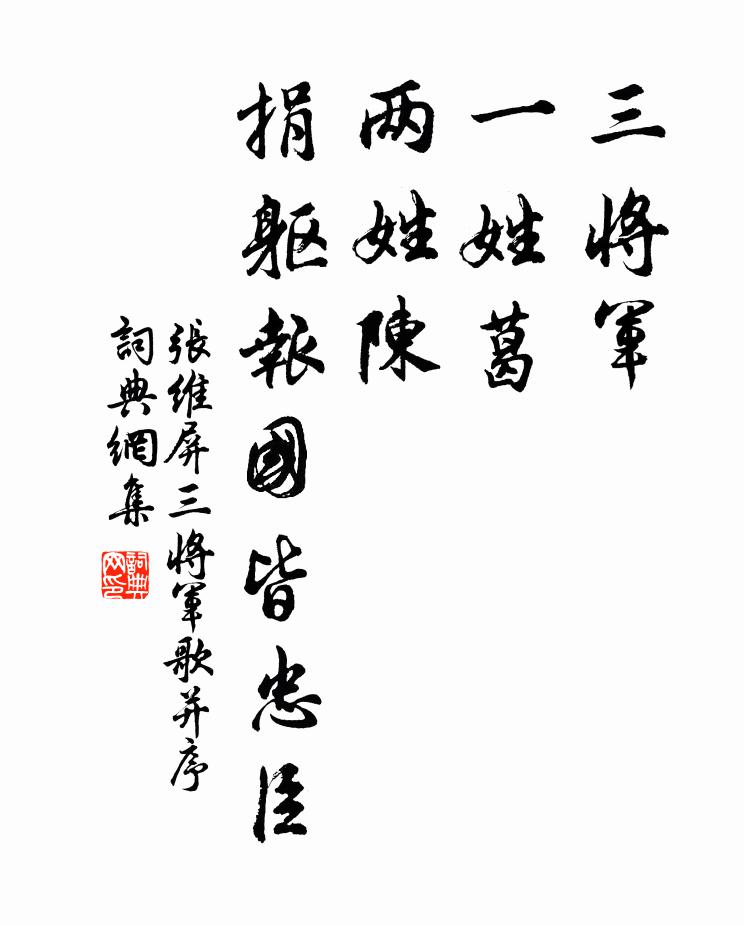 三將軍
一姓葛
两姓陳
捐軀報國皆忠臣
張維屏三將軍歌并序
詞典網集
詞典
网印